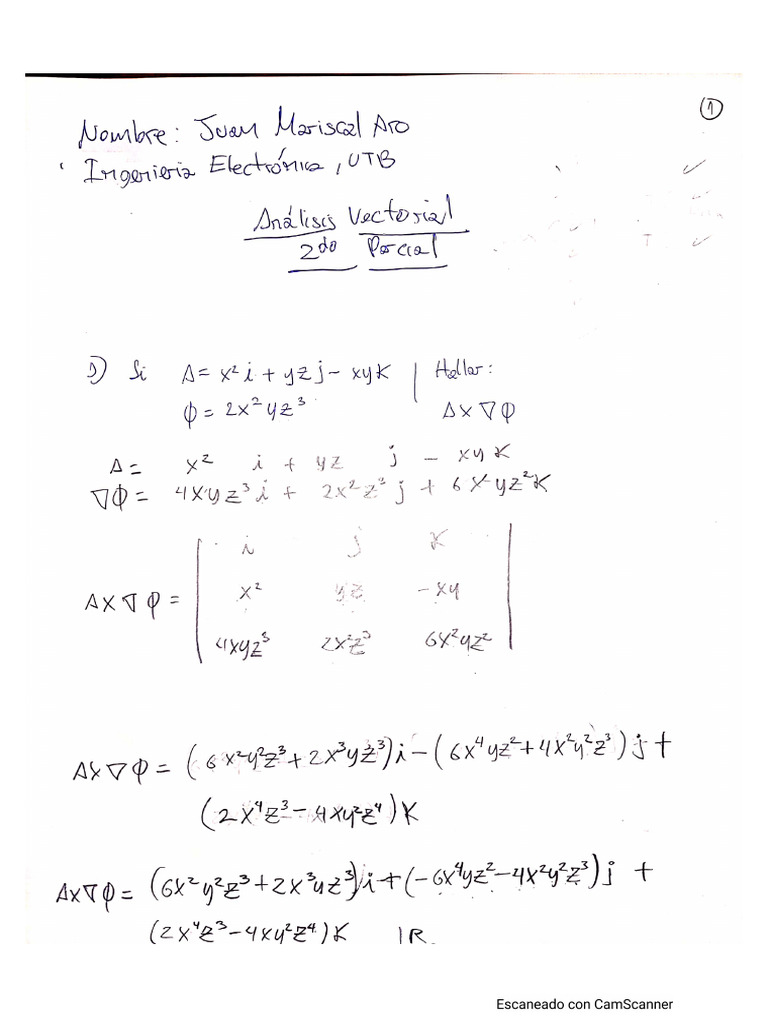 ①
Nombre: Juan Mariscal Aro
Ingeniería Electrónica, UTB
Análisis Vectorial
2do Parcial
1) Si A = x²i + yzj - xyK | Hallar:
φ = 2x²yz³ A x ∇φ
A = x² i + yz j - xy K
∇φ = 4xyz³i + 2x²z³j + 6x²yz²K
i j K
A x ∇φ = x² yz -xy
4xyz³ 2x²z³ 6x²yz²
A x ∇φ = (6x²y²z³ + 2x³yz³)i - (6x⁴yz² + 4x²y²z³)j +
(2x⁴z³ - 4xy²z⁴)K
A x ∇φ = (6x²y²z³ + 2x³yz³)i + (-6x⁴yz² - 4x²y²z³)j +
(2x⁴z³ - 4xy²z⁴)K |R.
Escaneado con CamScanner